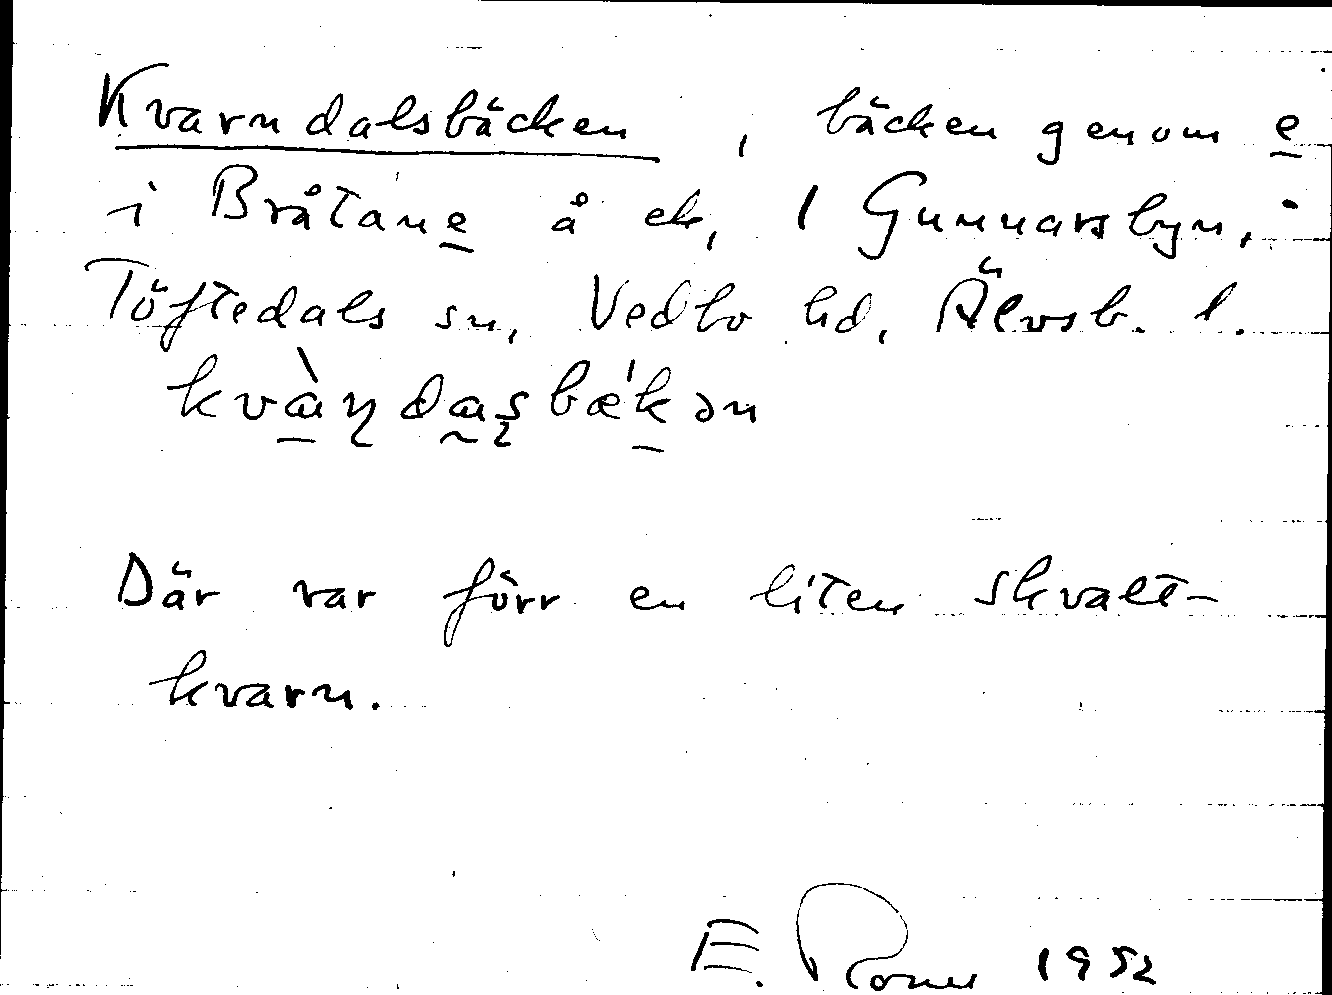 Kvarndalsbäcken, bäcken genom e
i Bråtane å ek, 1 Gunnarsbyn,
Töftedals sn, Vedbo hd, Älvsb. l.
kvàɳdaʂbæ'kən
Där var förr en liten skvalt-
kvarn.
E. 1952